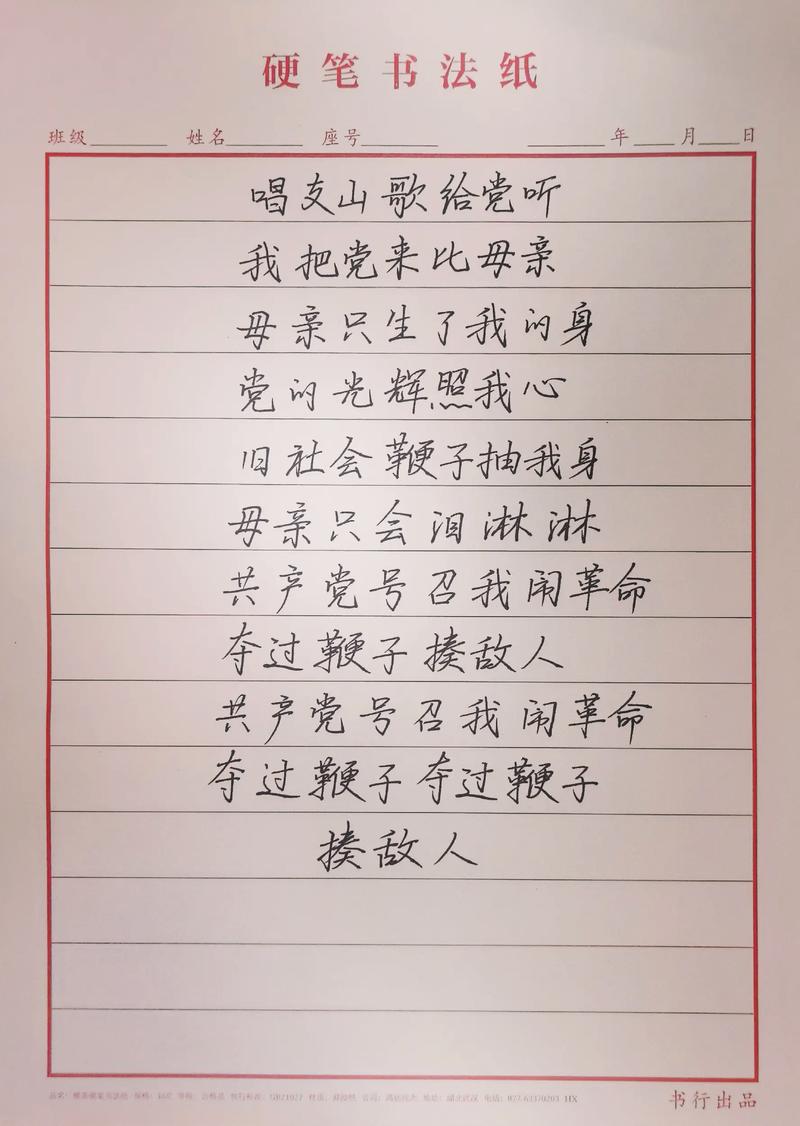 硬笔书法纸
班级 姓名 座号 年 月 日
唱支山歌给党听
我把党来比母亲
母亲只生了我的身
党的光辉照我心
旧社会鞭子抽我身
母亲只会泪淋淋
共产党号召我闹革命
夺过鞭子揍敌人
共产党号召我闹革命
夺过鞭子夺过鞭子
揍敌人
书行出品